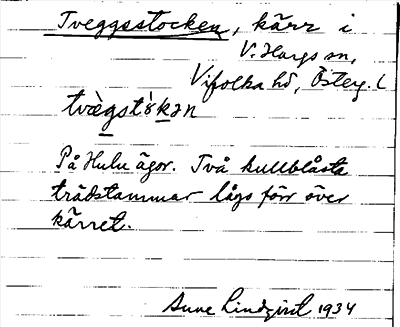 Tveggsstocken, kärr i
V. Hargs sn,
Vifolka hd, Österg. (
tvègstòkən
På Hulu ägor. Två kullblåsta
trädstammar lågo förr över
kärret.
Sune Lindqvist 1934